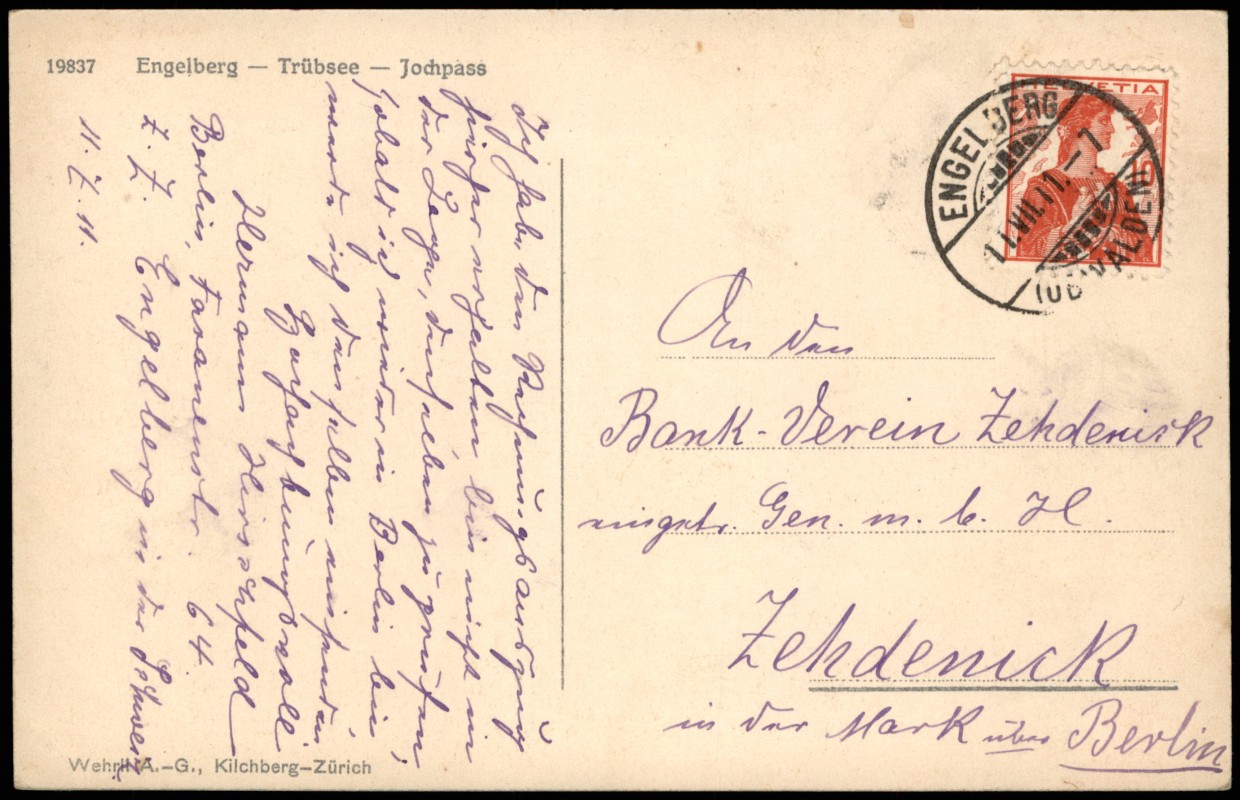 19837 Engelberg — Trübsee — Jochpass
HELVETIA
10
ENGELBERG
11.VII.11.–7
(OBWALDEN)
An den
Bank-Verein Zehdenick
eingetr. Gen. m. b. H.
Zehdenick
in der Mark über Berlin
Ich habe den Rechnungsauszug
hier erhalten bin nicht in
der Lage, denselben zu prüfen,
sobald ich wieder in Berlin bin
werde ich denselben einsenden
Hochachtungsvoll
Hermann Hirschfeld
Berlin, 64.
z. Z. Engelberg in der Schweiz
11. 7. 11.
Wehrli A.-G., Kilchberg-Zürich